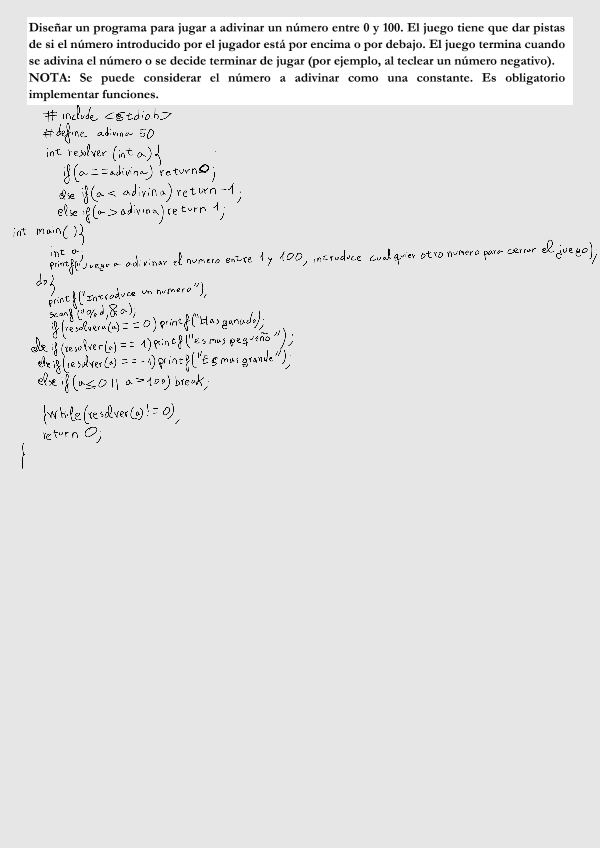 Diseñar un programa para jugar a adivinar un número entre 0 y 100. El juego tiene que dar pistas
de si el número introducido por el jugador está por encima o por debajo. El juego termina cuando
se adivina el número o se decide terminar de jugar (por ejemplo, al teclear un número negativo).
NOTA: Se puede considerar el número a adivinar como una constante. Es obligatorio
implementar funciones.
# include <stdioh>
# define adivina 50
int resolver (int a){
if(a==adivina) return 0;
else if(a < adivina) return -1;
else if(a > adivina) return 1;
int main(){
int a;
printf("Juego a adivinar el numero entre 1 y 100, introduce cualquier otro numero para cerrar el juego),
do{
printf("Introduce un numero"),
scanf("%d,&a);
if(resolvera(a)==0) printf("Has ganado);
else if(resolver(a)== 1) printf("Es mas pequeño");
else if(resolver(a)==-1) printf("Es mas grande");
else if(a≤0|| a>100) break;
}while(resolver(a)!=0),
return 0;
}